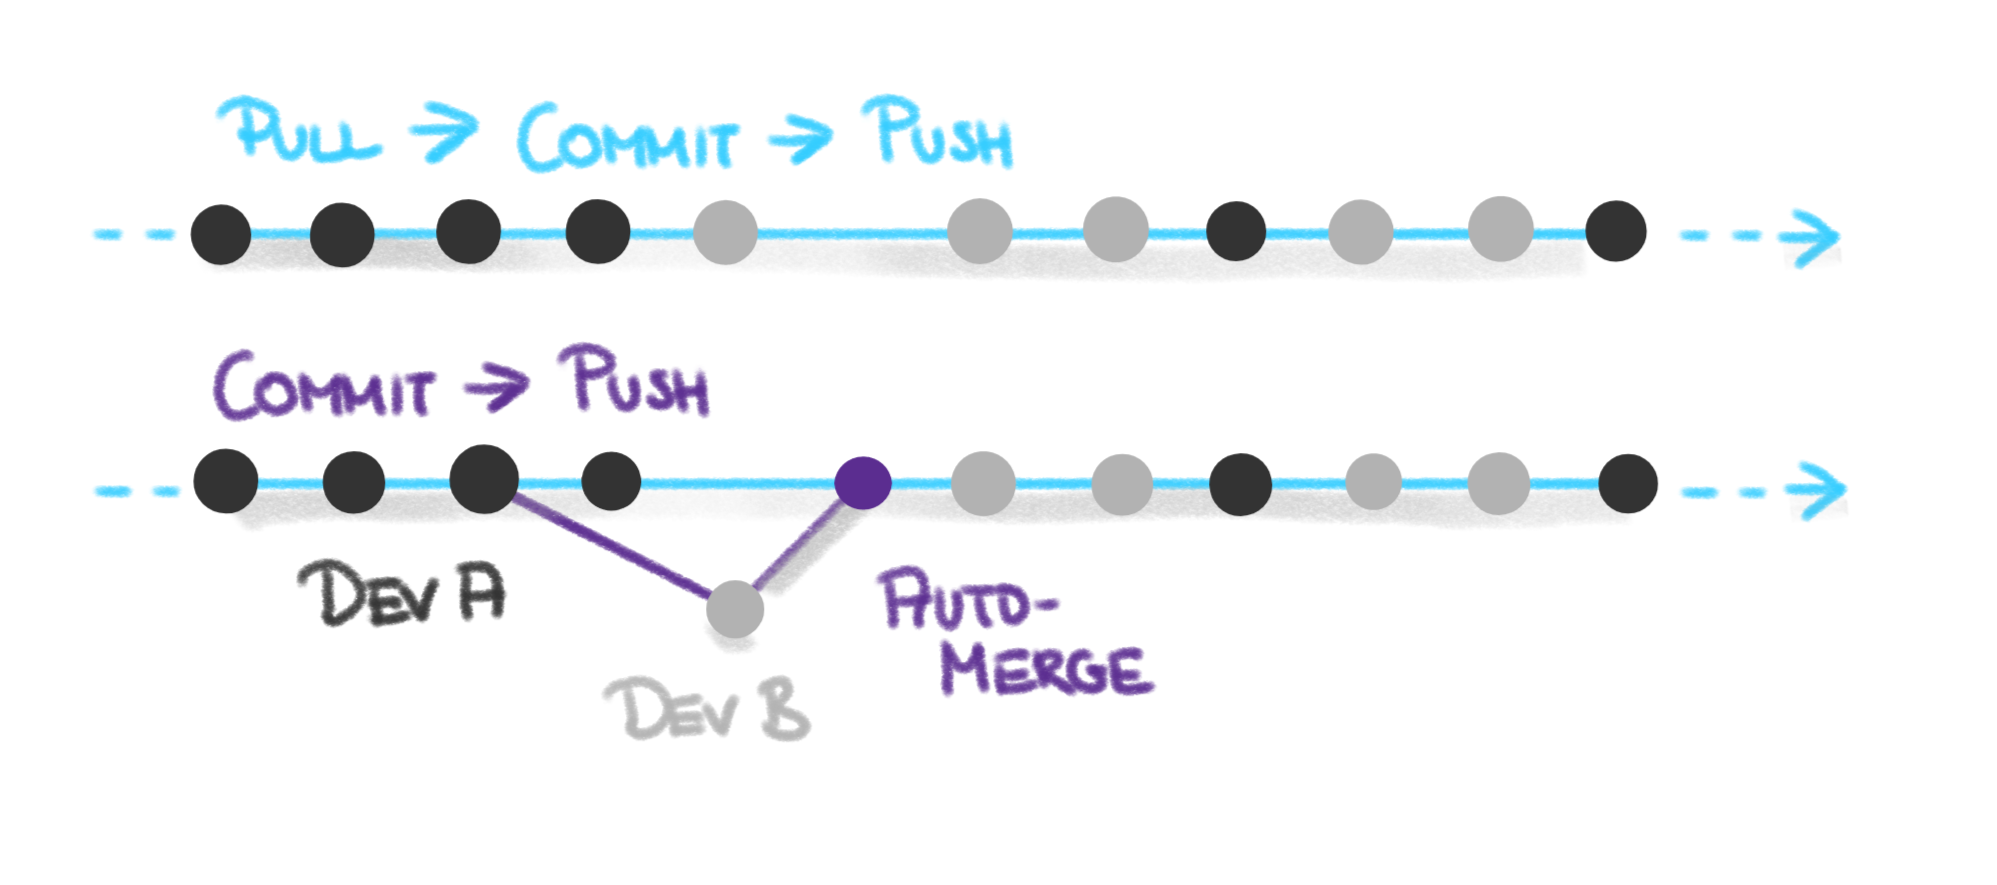 PULL → COMMIT → PUSH
COMMIT → PUSH
DEV A
DEV B
AUTO-
MERGE